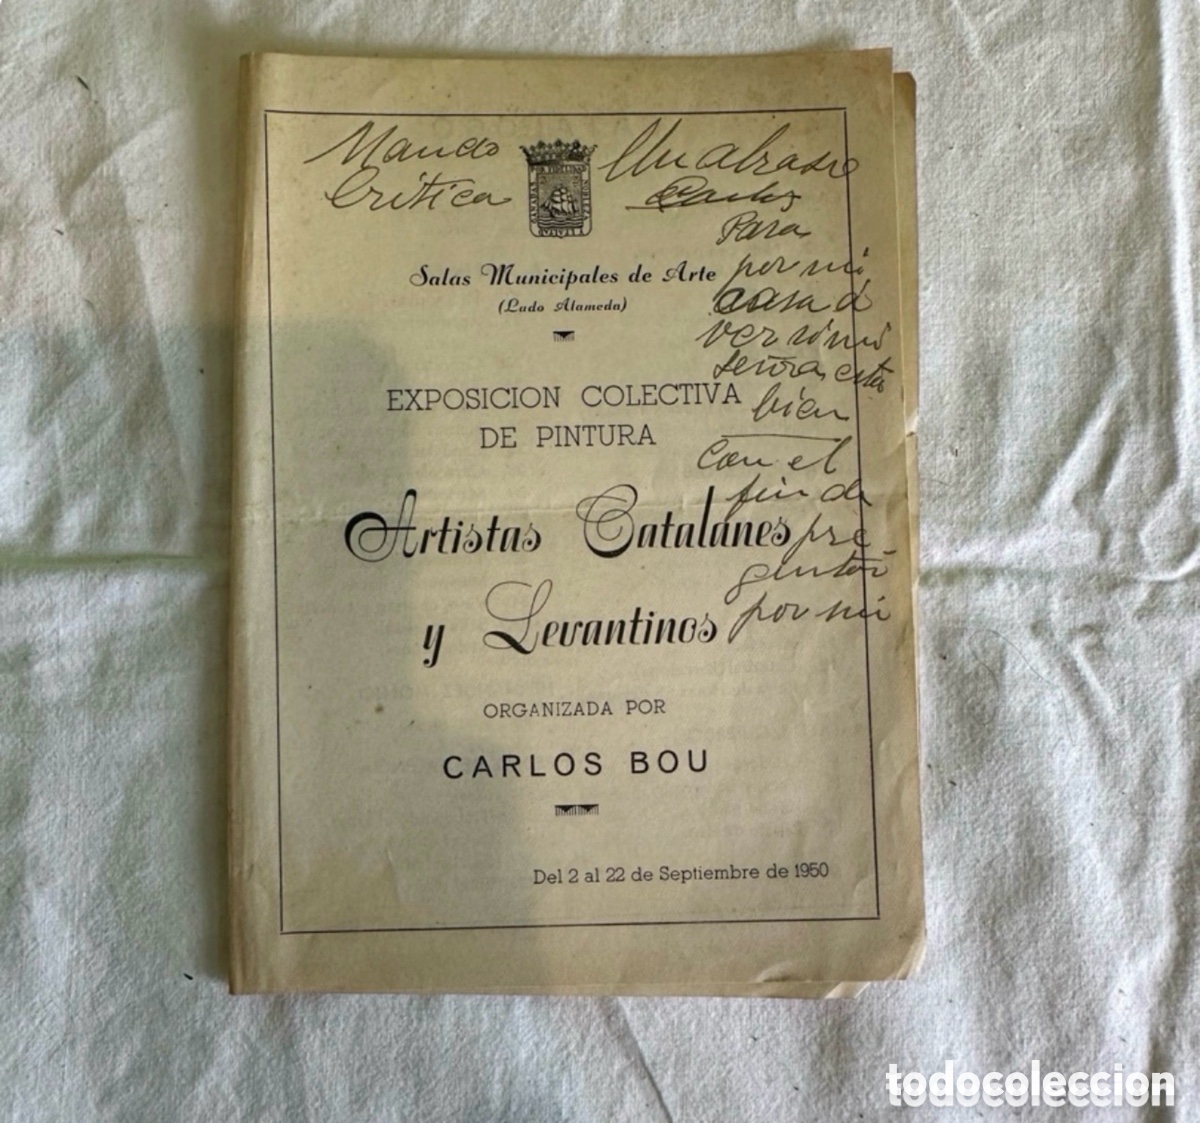 Mando
Critica
Un abrazo
Carlos
Pasa
por mi
casa a
ver si mi
señora esta
bien
con el
fin de
pre
guntar
por mi
Salas Municipales de Arte
(Lado Alameda)
EXPOSICION COLECTIVA
DE PINTURA
Artistas Catalanes
y Levantinos
ORGANIZADA POR
CARLOS BOU
Del 2 al 22 de Septiembre de 1950
todocoleccion